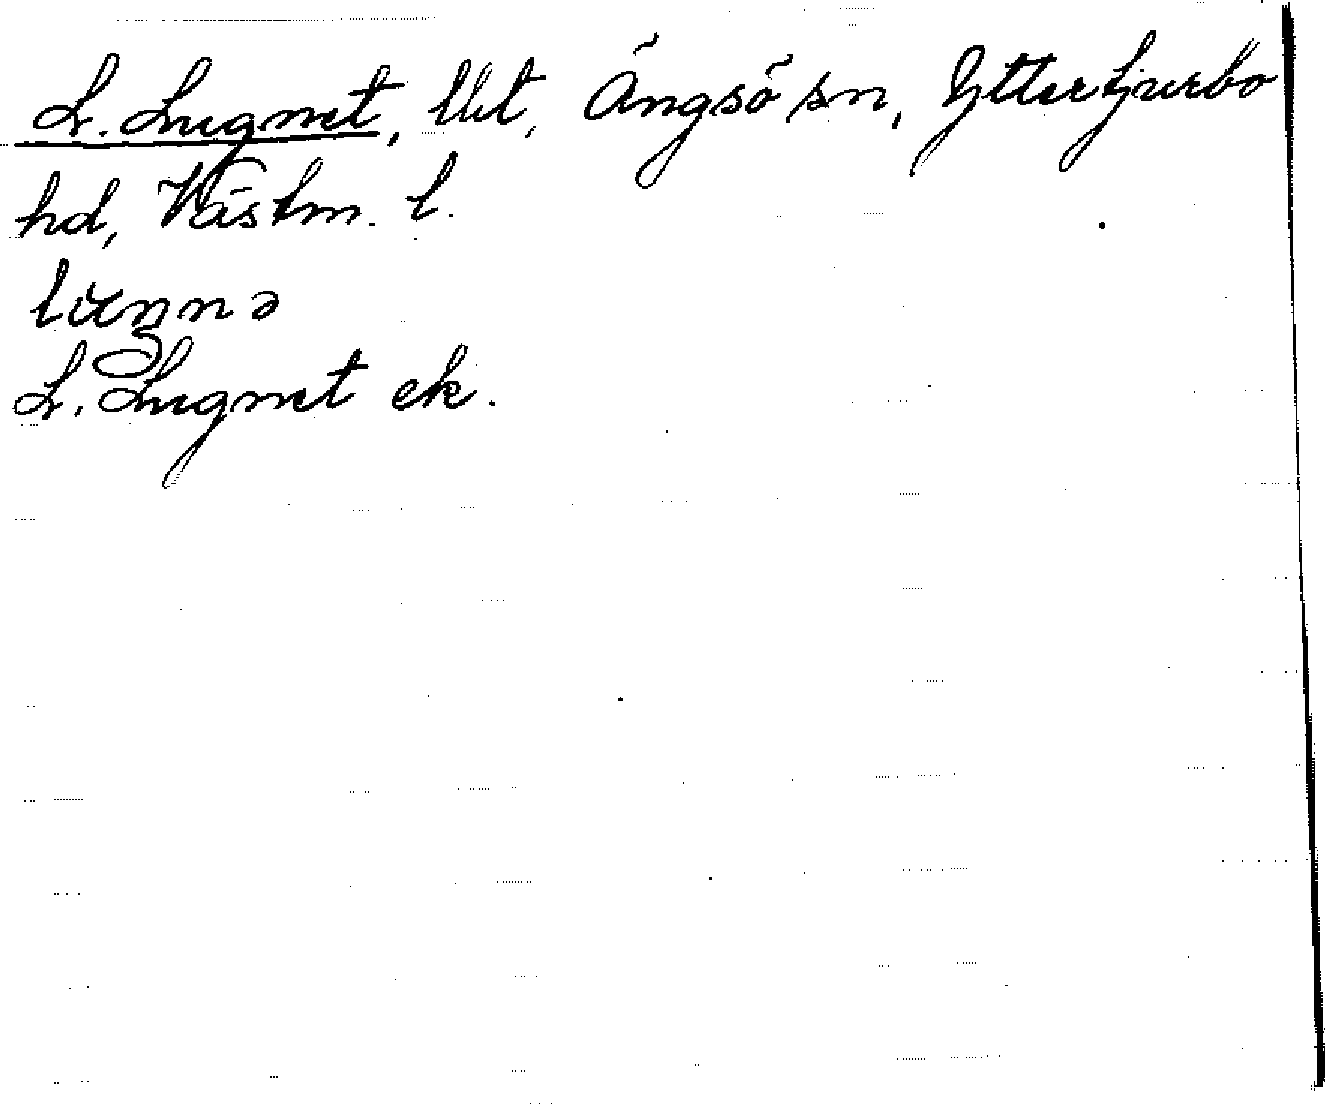 L. Lugnet, lht, Ängsö sn, Yttertjurbo
hd, Västm. l.
L. Lugnet ek.